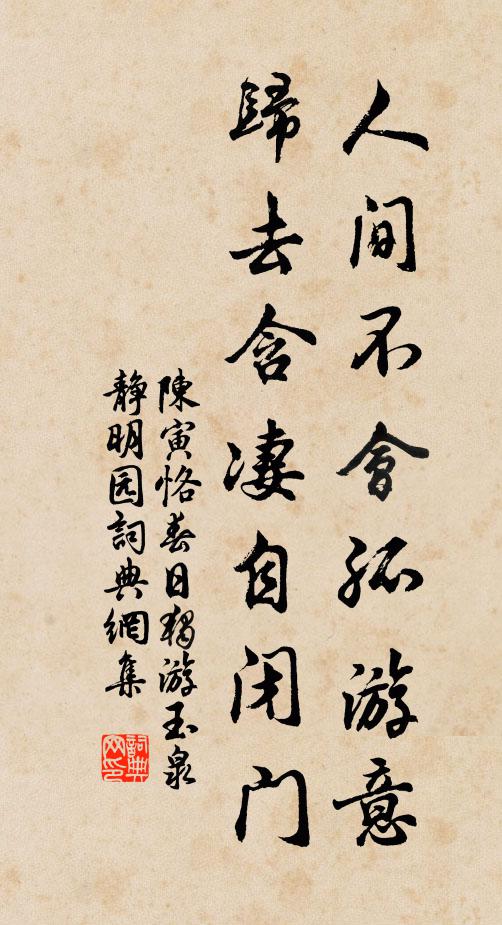 人间不會孤游意
歸去含凄自闭门
陳寅恪春日獨游玉泉
靜明园詞典網集
詞典网印